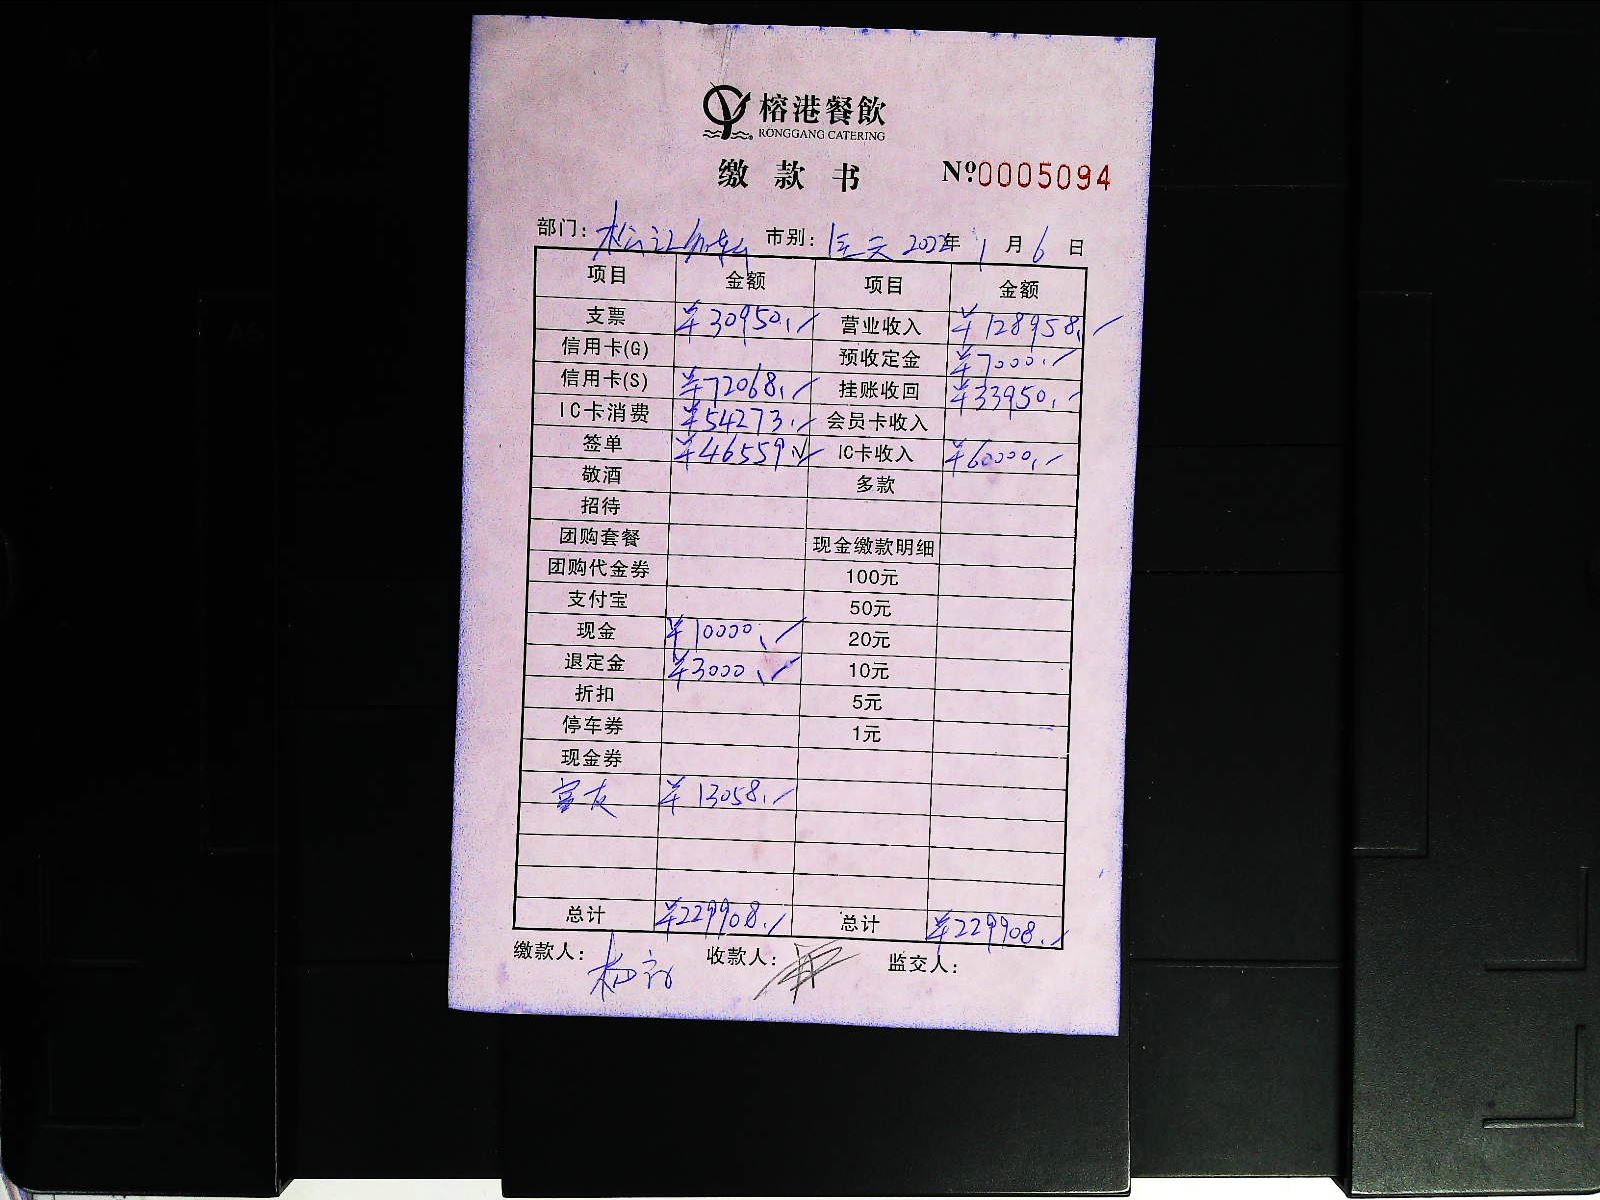 榕港餐飲
RONGGANG CATERING
缴款书 №0005094
部门: 松江 市别: 全天 2022年 1月 6日
项目 金额 项目 金额
支票 ¥30950.- 营业收入 ¥128958.-
信用卡(G) 预收定金 ¥7000.-
信用卡(S) ¥72068.- 挂账收回 ¥33950.-
IC卡消费 ¥54273.- 会员卡收入
签单 ¥46559.- IC卡收入 ¥60000.-
敬酒 多款
招待
团购套餐 现金缴款明细
团购代金券 100元
支付宝 50元
现金 ¥10000.- 20元
退定金 ¥3000.- 10元
折扣 5元
停车券 1元
现金券
¥13058.-
总计 ¥229908.- 总计 ¥229908.-
缴款人: 收款人: 监交人: